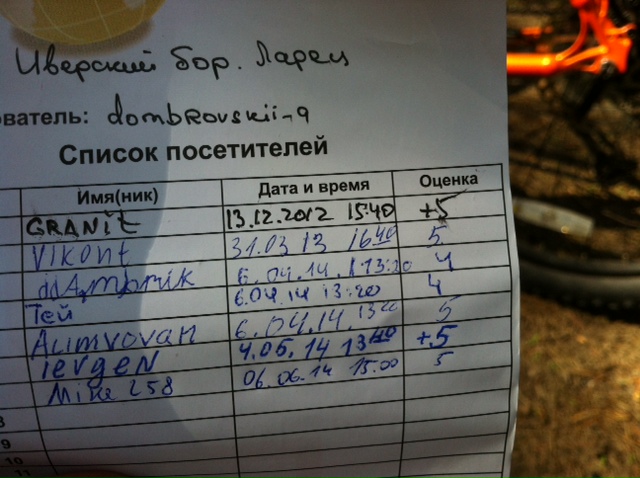 Иверский бор. Ларец
ователь: dombrovskii-9
Список посетителей
Имя(ник) Дата и время Оценка
GRANit 13.12.2012 15:40 +5
Vikont 31.03 13 16:40 5
6.04.14. 13:20 4
Тей 6.04.14 13:20 4
Alimvovan 6.04.14. 13 5
ievgeN 4.05.14 13 +5
Mike 258 06.06.14 15:00 5
8
9
10
11